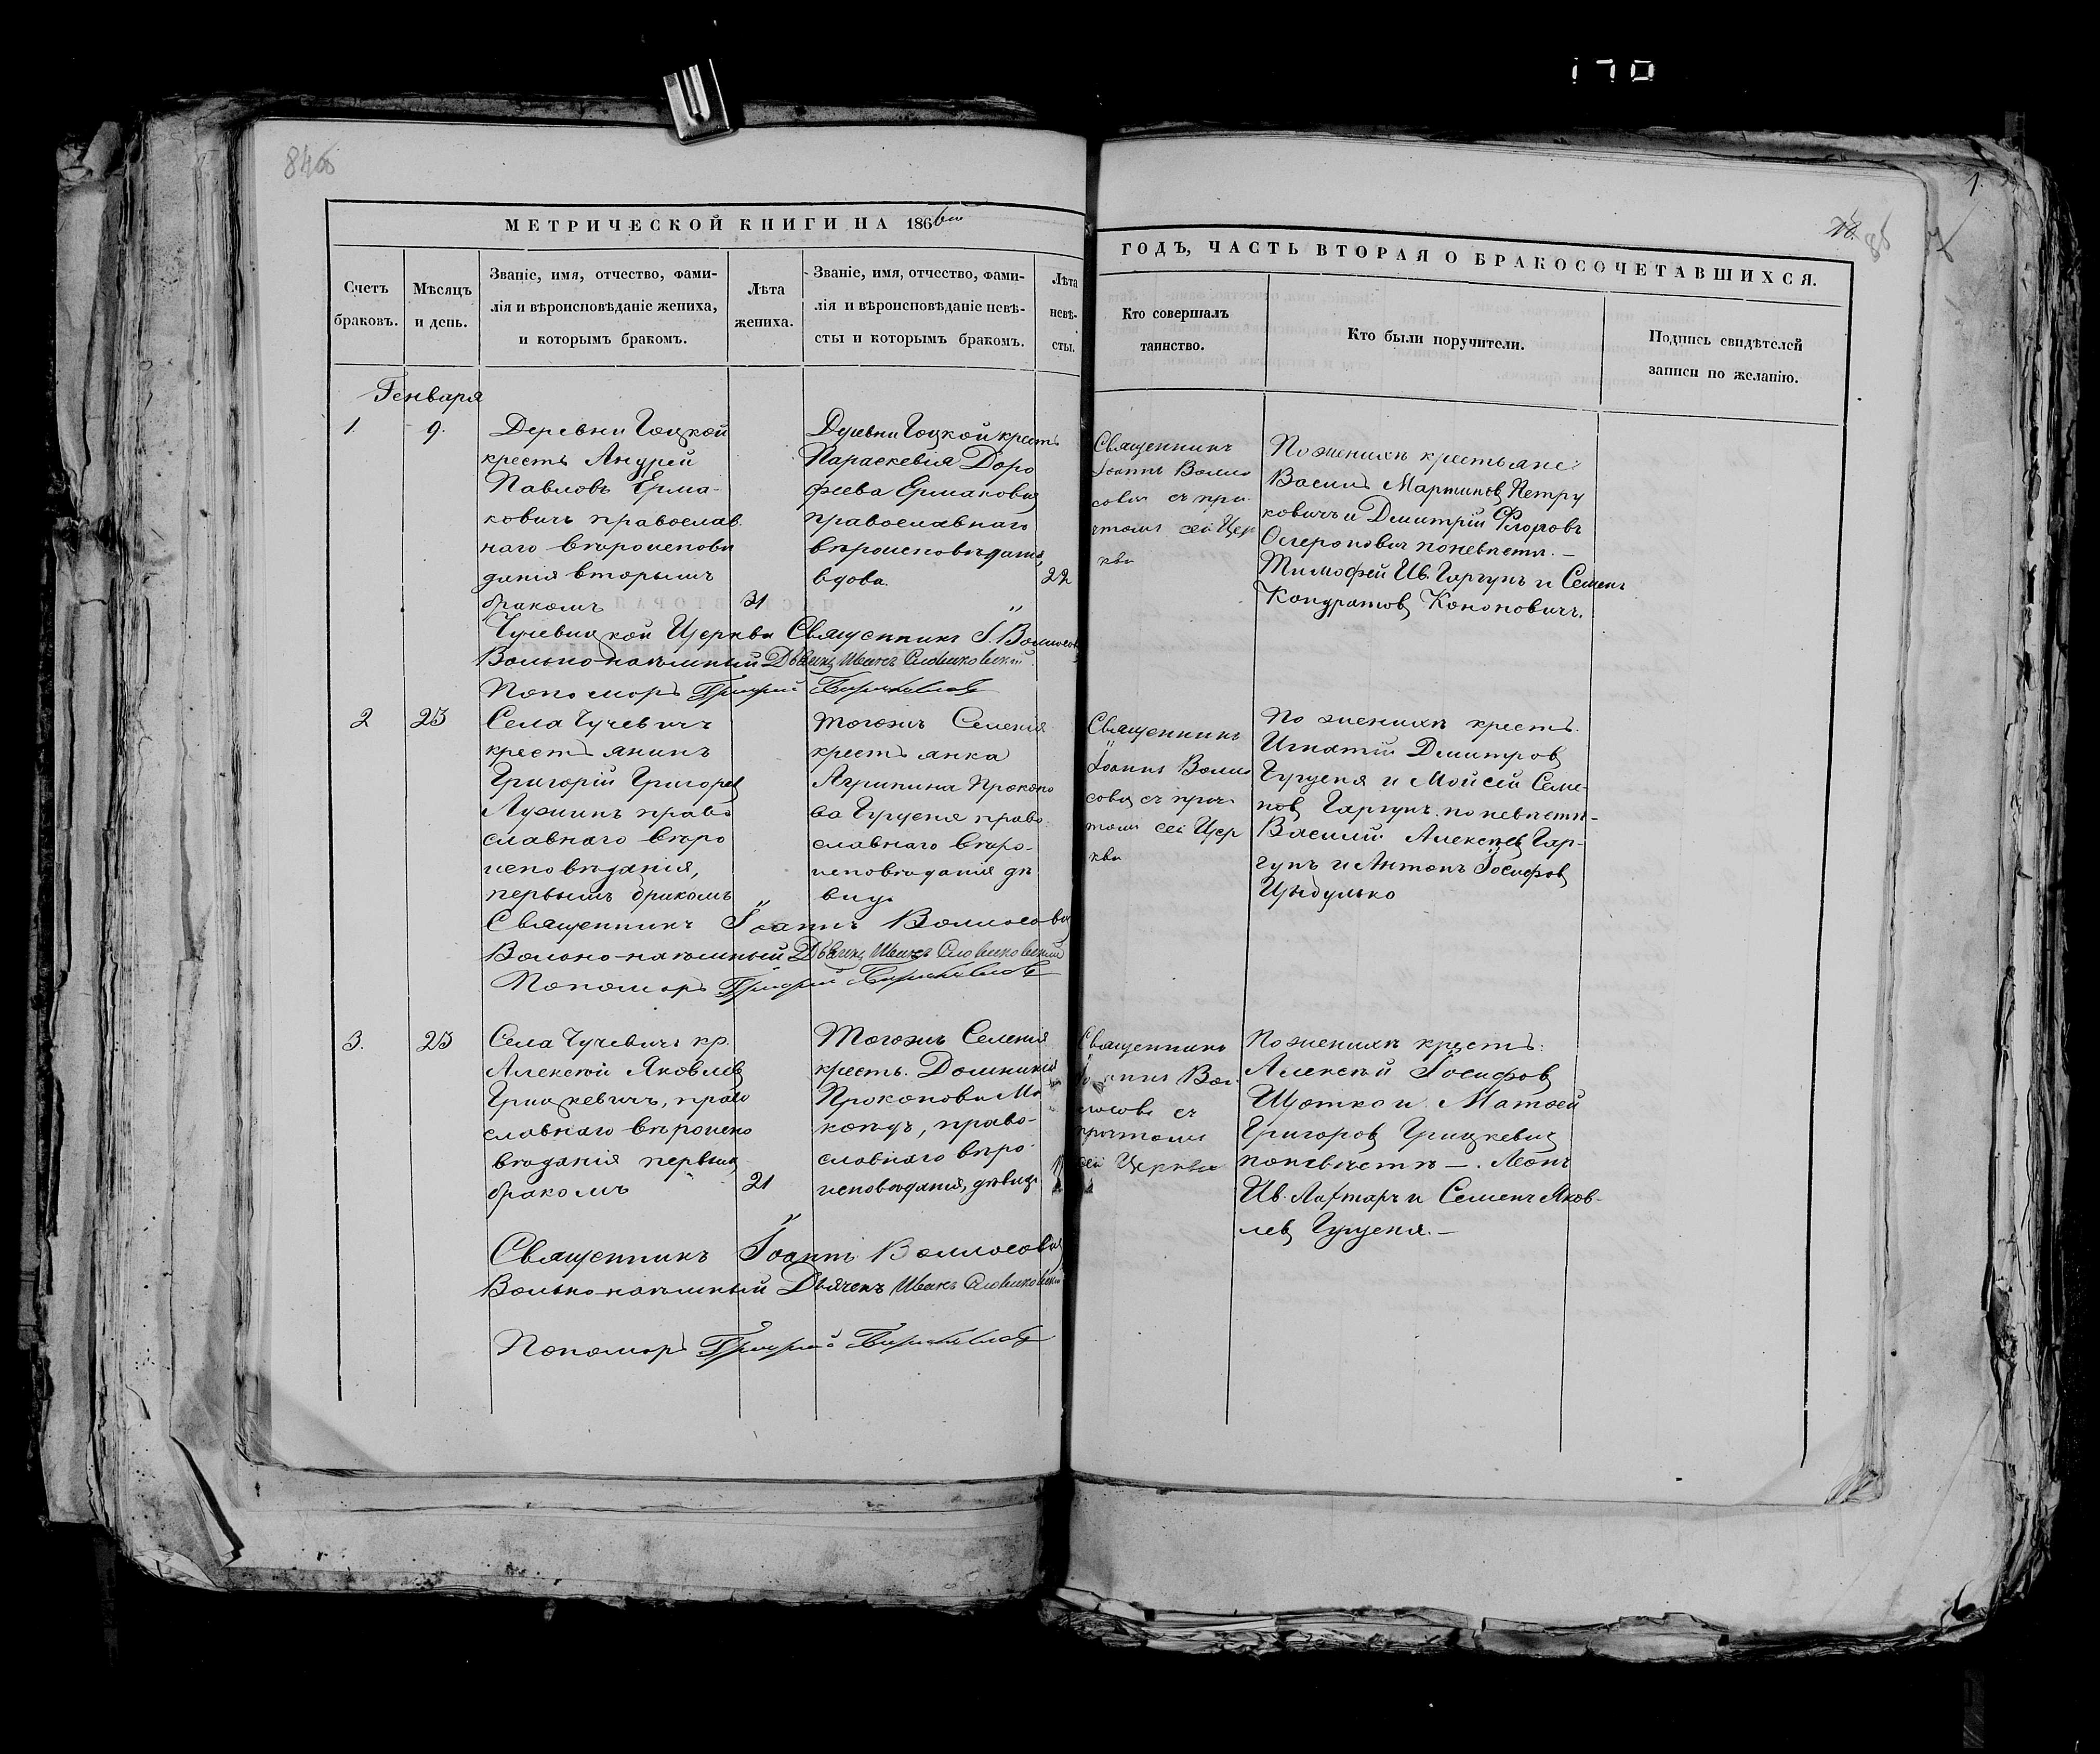 170
МЕТРИЧЕСКОЙ КНИГИ НА 186
ГОДЪ, ЧАСТЬ ВТОРАЯ О БРАКОСОЧЕТАВШИХСЯ.
Счетъ браковъ.
Мѣсяцъ и день.
Званіе, имя, отчество, фами-
лія и вѣроисповѣданіе жениха,
и которымъ бракомъ.
Лѣта
жениха.
Званіе, имя, отчество, фами-
лія и вѣроисповѣданіе невѣ-
сты и которымъ бракомъ.
Лѣта
невѣ-
сты.
Кто совершалъ
таинство.
Кто были поручители.
Подпись свидѣтелей
записи по желанію.
Генваря
1. 9.
Деревни Гоцкой
крестъ Андрей
Павловъ Ерма-
ковичъ православ
наго вѣроисповѣ
данія вторымъ
бракомъ 31
Деревни Гоцкой крестъ
Параскевія Доро
феева Ермаковна
православнаго
вѣроисповѣданія,
вдова. 22
Священникъ
Іоаннъ
съ при-
чтомъ сей Цер
кви
По женихѣ крестьяне:
Василь Мартиновъ Петру
ковичъ и Димитрій Флоровъ
по невѣстѣ. —
Тимофей Ив. Гаргунъ и Семенъ
Кондратовъ Кононовичъ.
Чучевицкой Церкви Священникъ І.
Вольно-наемный Дьячекъ Иванъ
Пономарь Григорій
2 25
Села Чучевичъ
крестьянинъ
Григорій Григорьев
Лужинъ право
славнаго вѣро
исповѣданія,
первымъ бракомъ
Тогожъ Селенія
крестьянка
Агрипина Прокопо
ва Гуруеня право
славнаго вѣро-
исповѣданія дѣ
вица
Священникъ
Іоаннъ
съ прич-
томъ сей Цер
кви
По женихѣ крестъ.
Игнатій Димитров
Гуруеня и Мойсей Семе-
нов Гаргунъ. по невѣстѣ-
Василій Алексѣев Гар-
гунъ и Антонъ Іосифов
Цыбулько
Священникъ Іоаннъ
Вольно-наемный Дьячекъ Иванъ
Пономарь Григорій
3. 25
Села Чучевичъ кр.
Алексѣй Яковлев
Грицкевичъ, право
славнаго вѣроиспо
вѣданія первым
бракомъ 21
Тогожъ Селенія
крестъ. Домникія
Прокопова Ма
право-
славнаго вѣро-
исповѣданія, дѣвица
Священникъ
съ
причтомъ
сей Церкви
По женихѣ крестъ:
Алексѣй Іосифов
Щотко и Матвей
Григоров Грицкевич
по невѣстѣ —. Леонъ
Ив. Лахтаръ и Семенъ Яков-
лев Гуруеня. —
Священникъ Іоаннъ
Вольно-наемный Дьячекъ Иванъ
Пономарь Григорій